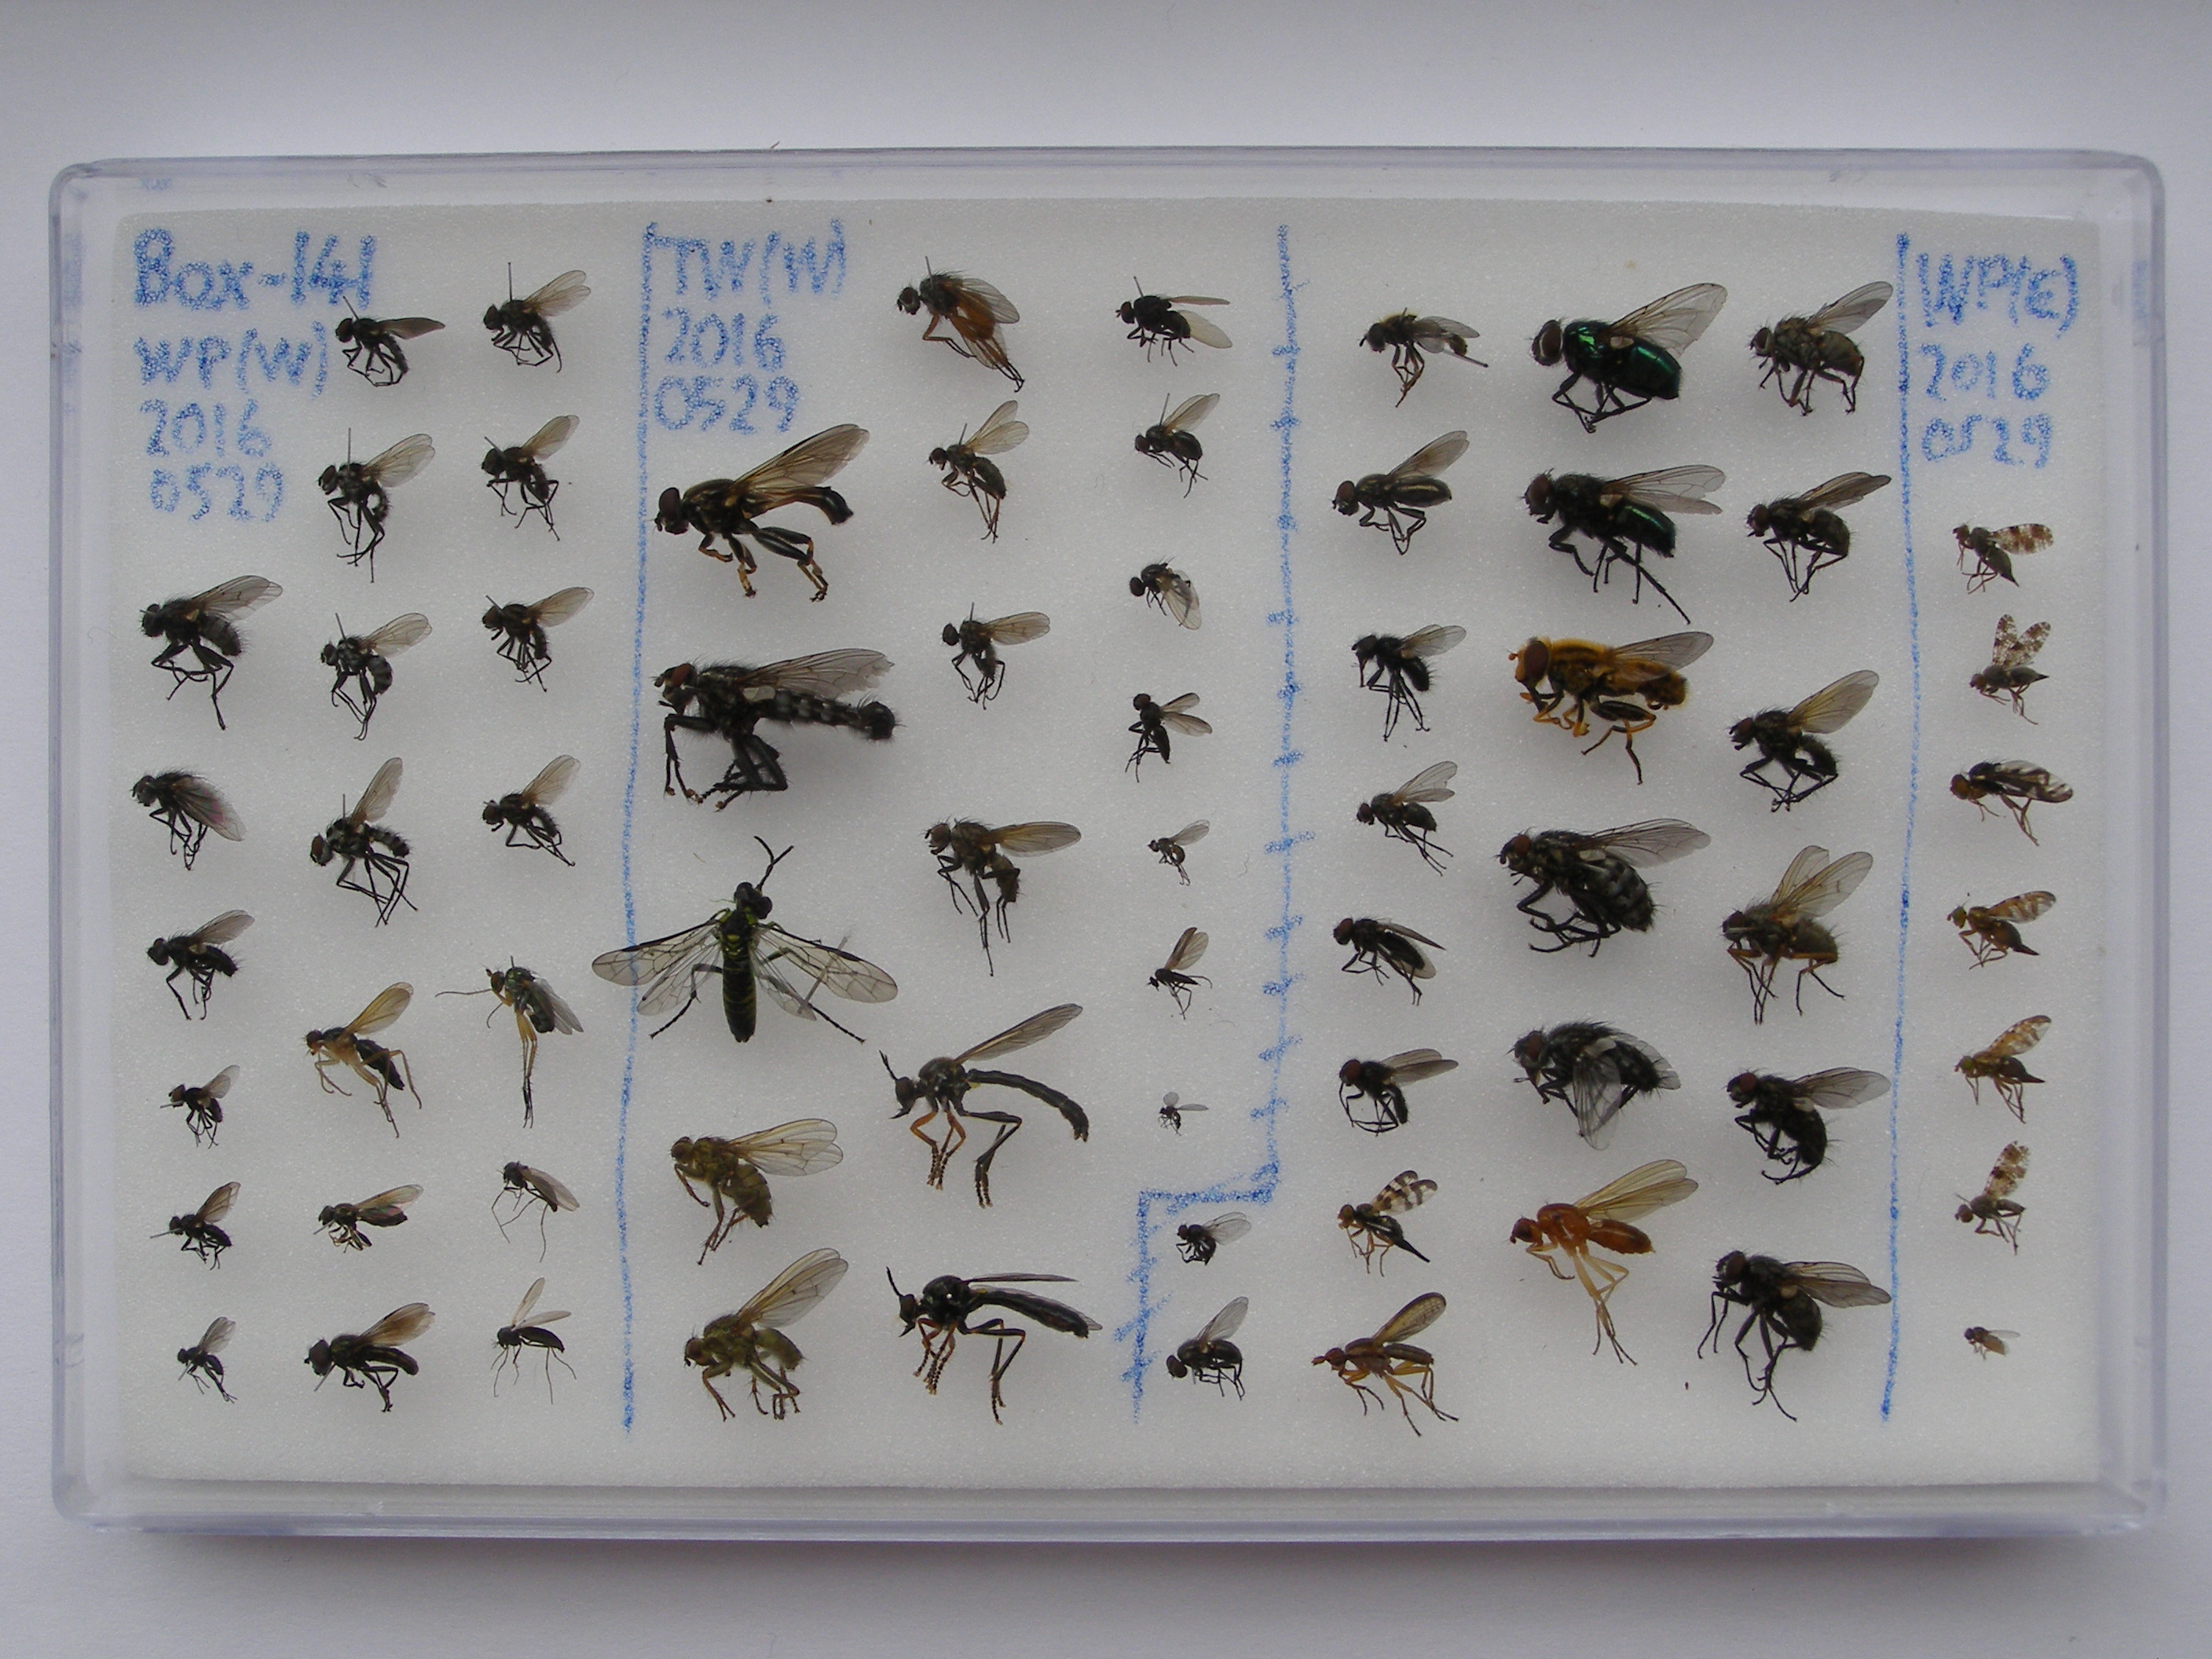 Box-141
WP(W)
2016
0529
TW(W)
2016
0529
WP(E)
2016
0529